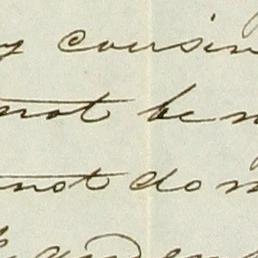 y cousin
not be
not do